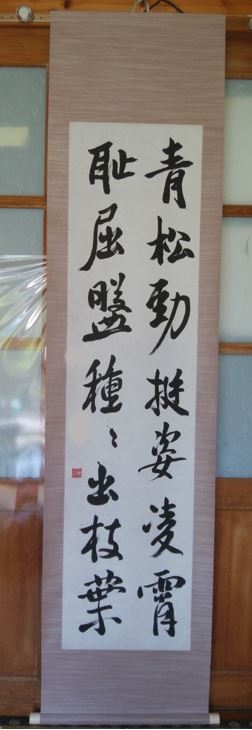 青松勁挺姿凌霄
耻屈盤種〻出枝葉